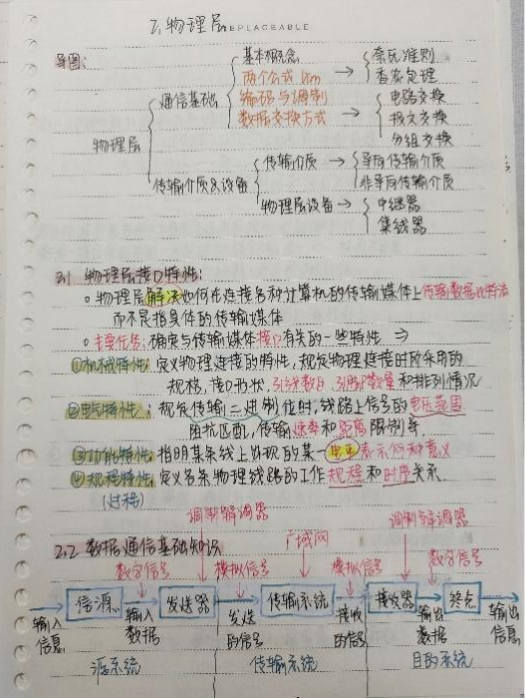 2. 物理层
REPLACEABLE
导图:
物理层
通信基础
基本概念
两个公式 lim → 奈氏准则
香农定理
编码与调制
数据交换方式 → 电路交换
报文交换
分组交换
传输介质及设备
传输介质 → 导向传输介质
非导向传输介质
物理层设备 → 中继器
集线器
物理层接口特性:
物理层解决如何在连接各种计算机的传输媒体上传输数据比特流
而不是指具体的传输媒体
主要任务: 确定与传输媒体接口有关的一些特性 ⇒
①机械特性: 定义物理连接的特性, 规定物理连接时所采用的
规格, 接口形状, 引线数目, 引脚数量和排列情况
②电气特性: 规定传输二进制位时, 线路上信号的电压范围
阻抗匹配, 传输速率和距离限制等.
③功能特性: 指明某条线上出现的某一电平表示何种意义
④规程特性: 定义各条物理线路的工作规程和时序关系.
(过程)
2.2 数据通信基础知识
调制解调器
广域网
调制解调器
数字信号
模拟信号
模拟信号
数字信号
信源
发送器
传输系统
接收器
终点
输入
信息
输入
数据
发送
的信号
接收
的信号
输出
数据
输出
信息
源系统
传输系统
目的系统